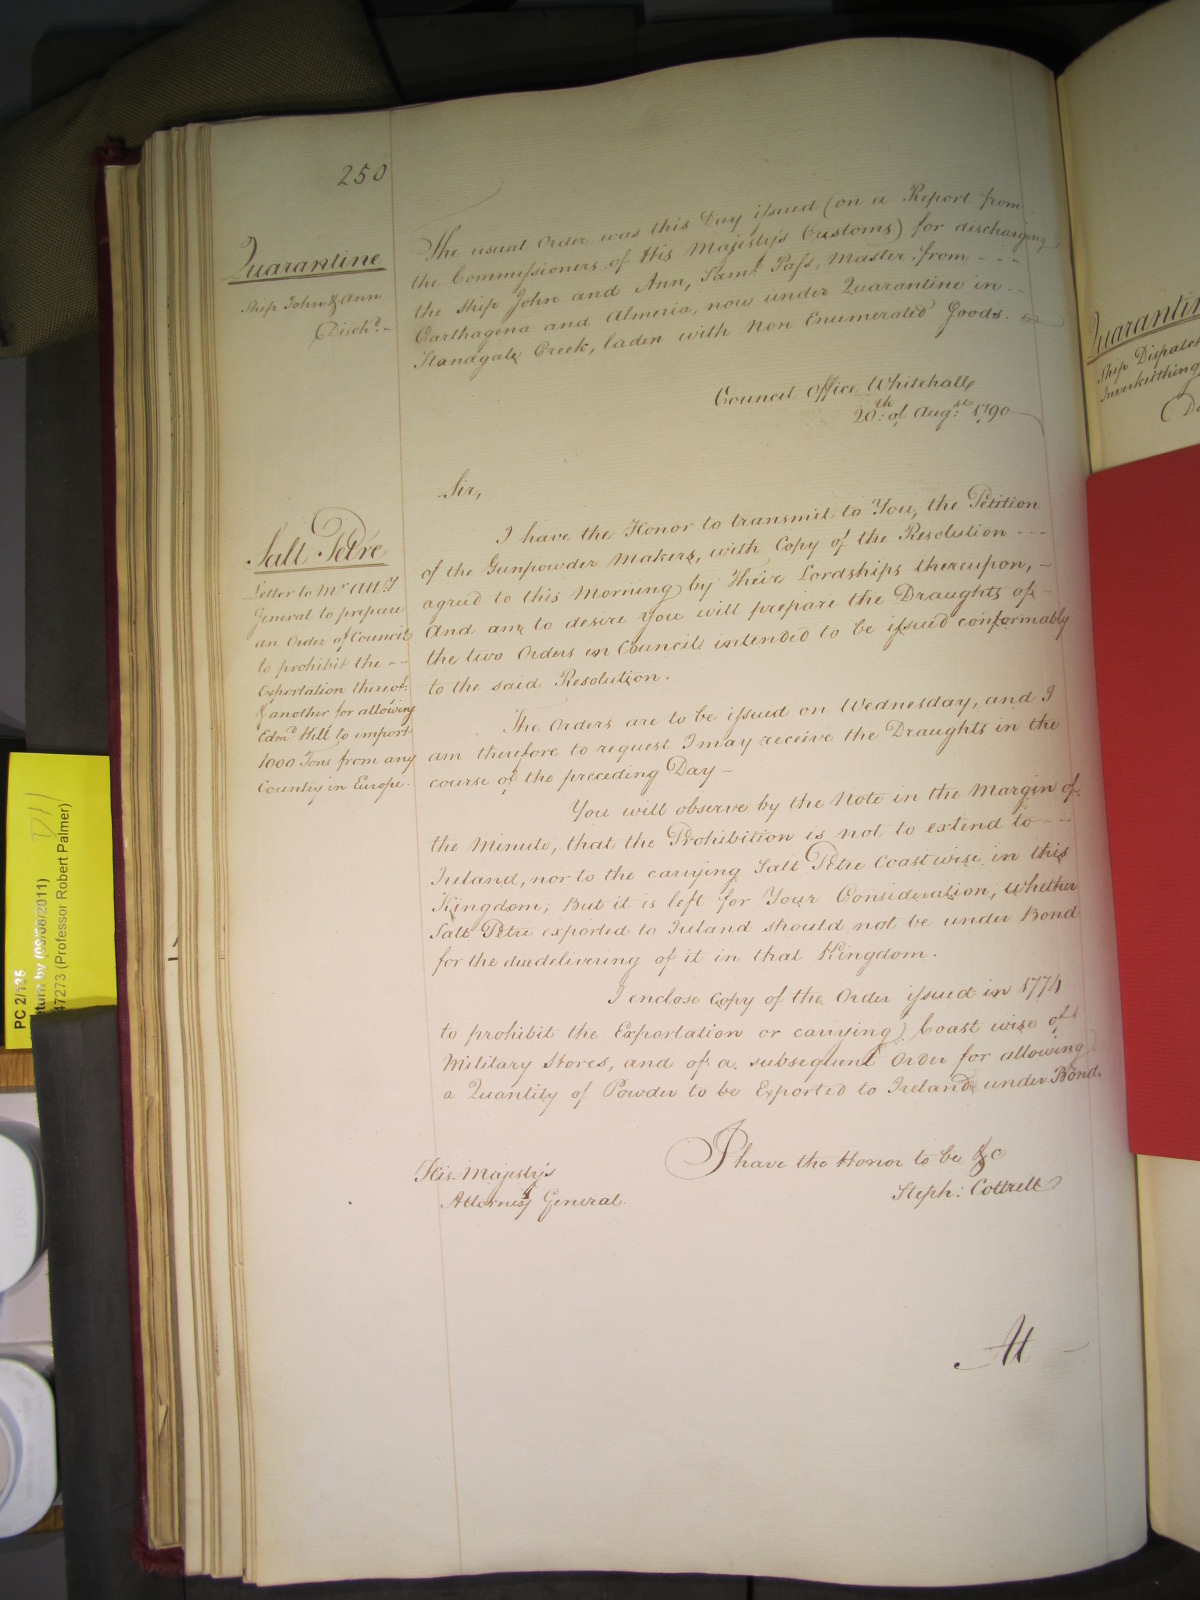 250
Quarantine
Ship John & Ann
Disch.d
The usual Order was this Day issued (on a Report from
the Commissioners of His Majesty's Customs) for discharging
the Ship John and Ann, Sam.l Pass, Master, from - - -
Carthagena and Almeria, now under Quarantine in - -
Standgate Creek, laden with Non Enumerated Goods.
Council Office Whitehall
20.th of Aug.st 1790
Salt Petre
Letter to Mr Att.y
General to prepare
an Order of Council
to prohibit the - -
Exportation thereof:
& another for allowing
Edm.d Hill to import
1000 Tons from any
Country in Europe.
Sir,
I have the Honor to transmit to You, the Petition
of the Gunpowder Makers, with Copy of the Resolution - - -
agreed to this Morning by Their Lordships thereupon, -
And am to desire You will prepare the Draughts of -
the two Orders in Council intended to be issued conformably
to the said Resolution.
The Orders are to be issued on Wednesday, and I
am therefore to request I may receive the Draughts in the
course of the preceding Day -
You will observe by the Note in the Margin of
the Minute, that the Prohibition is not to extend to - -
Ireland, nor to the carrying Salt Petre Coastwise in this
Kingdom; But it is left for Your Consideration, Whether
Salt Petre exported to Ireland should not be under Bond
for the due delivering of it in that Kingdom.
I enclose Copy of the Order issued in 1774
to prohibit the Exportation or carrying Coast wise of
Military Stores, and of a subsequent Order for allowing
a Quantity of Powder to be Exported to Ireland under Bond.
I have the Honor to be &c
Steph: Cottrell
His Majesty's
Attorney General.
At
Quarantin
Ship Dispatc
Inverkeithing
(D
PC 2/135
turn by (09/08/2011)
47273 (Professor Robert Palmer)
D11